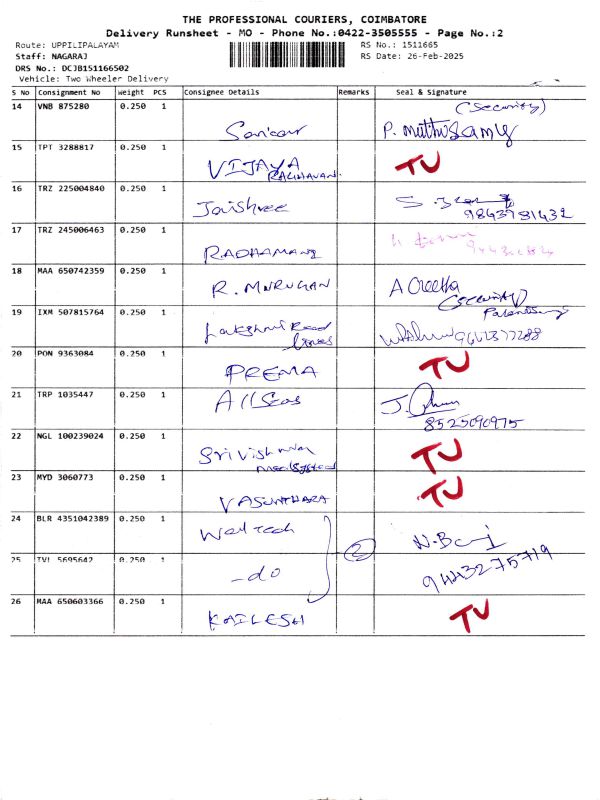 THE PROFESSIONAL COURIERS, COIMBATORE
Delivery Runsheet - MO - Phone No.:0422-3505555 - Page No.:2
Route: UPPILIPALAYAM RS No.: 1511665
Staff: NAGARAJ RS Date: 26-Feb-2025
DRS No.: DCJB151166502
Vehicle: Two Wheeler Delivery
S No Consignment No Weight PCS Consignee Details Remarks Seal & Signature
14 VNB 875280 0.250 1 (Security)
P. Muthusamy
15 TPT 3288817 0.250 1
VIJAYA TU
RAGHAVAN
16 TRZ 225004840 0.250 1
Jaishree 9843981432
17 TRZ 245006463 0.250 1
RADHAMANI
18 MAA 650742359 0.250 1
R. MURUGAN A Creetha
(Security)
19 IXM 507815764 0.250 1
Lakshmi Road
lines
20 PON 9363084 0.250 1
PREMA TU
21 TRP 1035447 0.250 1
All Seas J.
8525090975
22 NGL 100239024 0.250 1
Sri Vishnu TU
23 MYD 3060773 0.250 1
VASUNTHARA TU
24 BLR 4351042389 0.250 1
Well Tech (2)
25 TVL 5695642 0.250 1
-do 9443275719
26 MAA 650603366 0.250 1
KAILESH TU